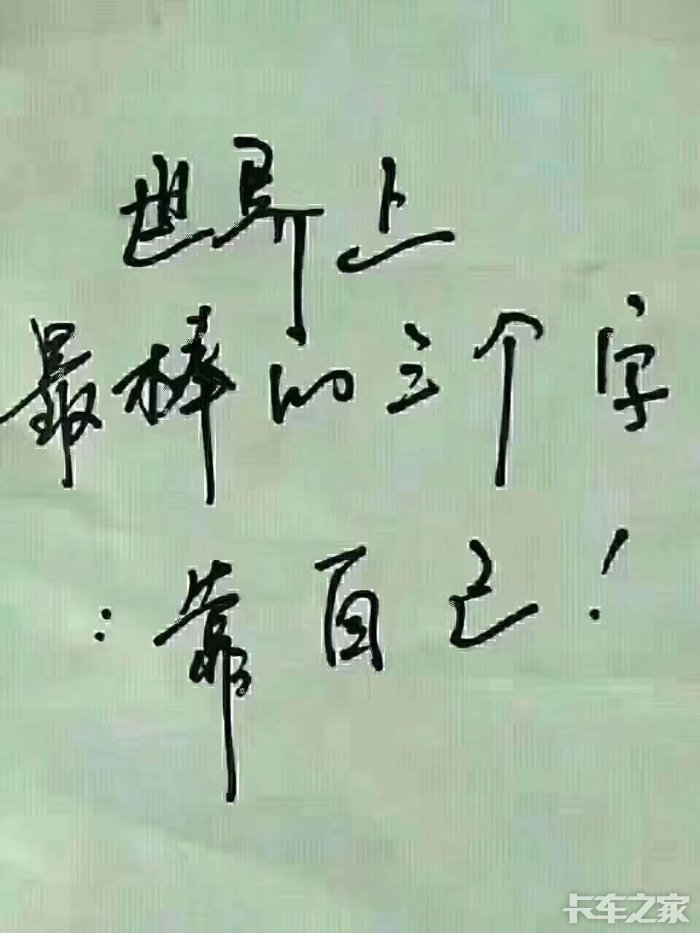 世界上
最棒的三个字
:靠自己!
卡车之家